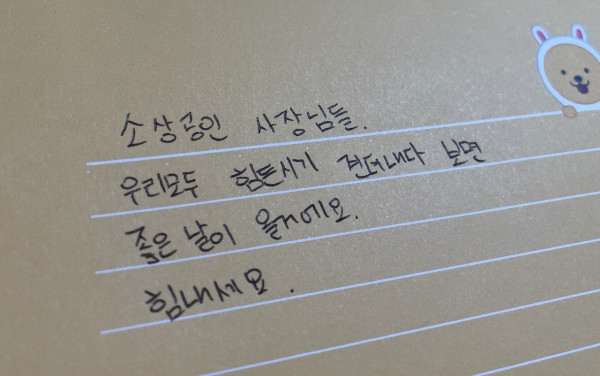 소상공인 사장님들.
우리모두 힘든시기 견뎌내다 보면
좋은 날이 올거에요.
힘내세요.